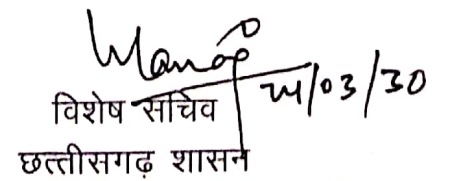 24/03/30
विशेष सचिव
छत्तीसगढ़ शासन